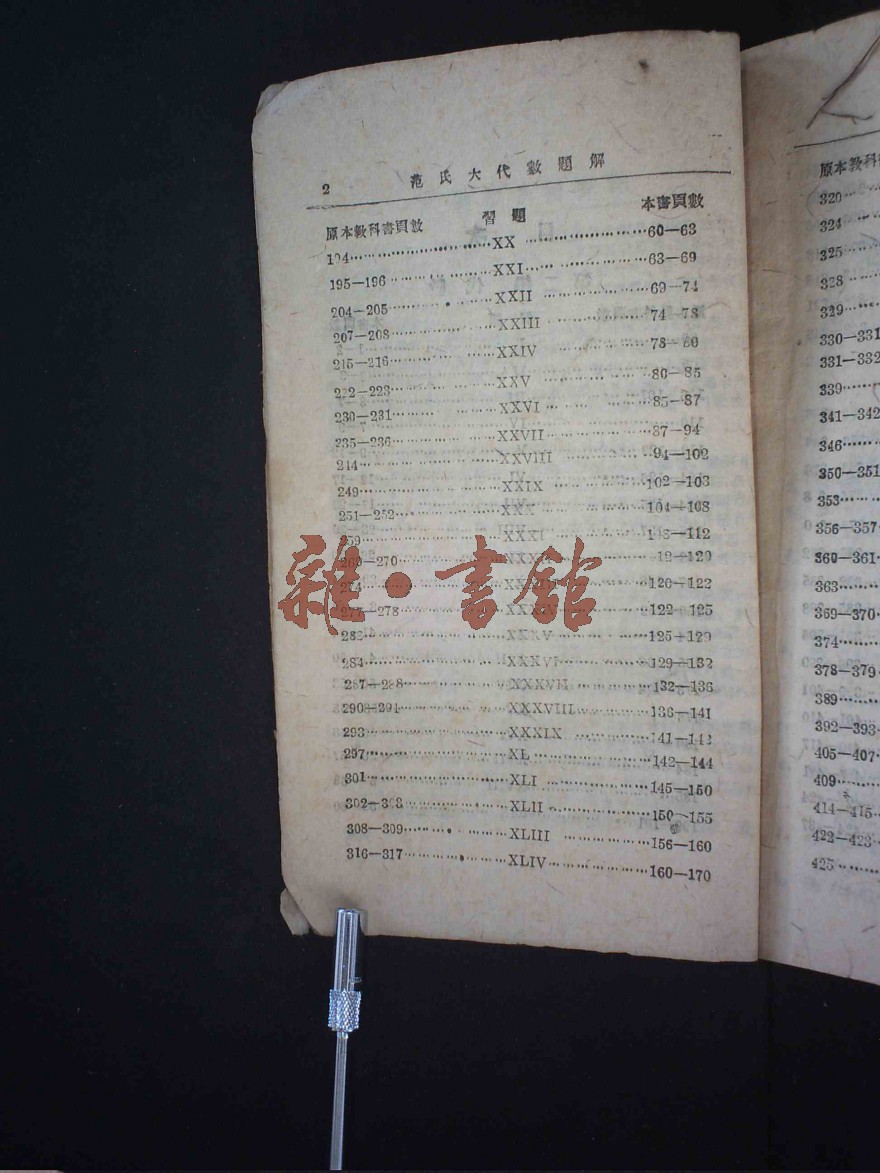 2 范氏大代數題解
原本敎科書頁數 習題 本書頁數
194 XX 60—63
195—196 XXI 63—69
204—205 XXII 69—74
207—208 XXIII 74—78
215—216 XXIV 78—80
222—223 XXV 80—85
230—231 XXVI 85—87
235—236 XXVII 87—94
244 XXVIII 94—102
249 XXIX 102—103
251—252 XXX 104—108
259 XXXI 108—112
269—270
274 120—122
277—278 XXXIV 122—125
XXXV 125—129
284 XXXVI 129—132
287—288 XXXVII 132—136
290—291 XXXVIII 136—141
293 XXXIX
297 XL 142—144
301 XLI 145—150
XLII 150—155
308—309 XLIII 156—160
316—317 XLIV 160—170
雜·書館
原本敎科書
320
324
325
328
329
330—331
331—332
339
341—342
346
350—351
353
356—357
360—361
363
369—370
374
378—379
389
392—393
405—407
409
414—415
422—423
425